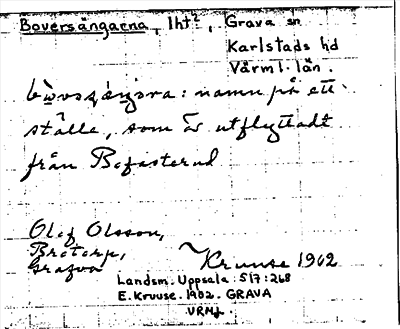 Boversängarna, lht?, Grava sn
Karlstads hd
Värml. län.
namn på ett
ställe, som är utflyttadt
från Bofasterud
Olof Olsson,
Brotorp,
Grafva
Kruuse 1902
Landsm. Uppsala 517:268
E. Kruuse. 1902. GRAVA
VRMJ.